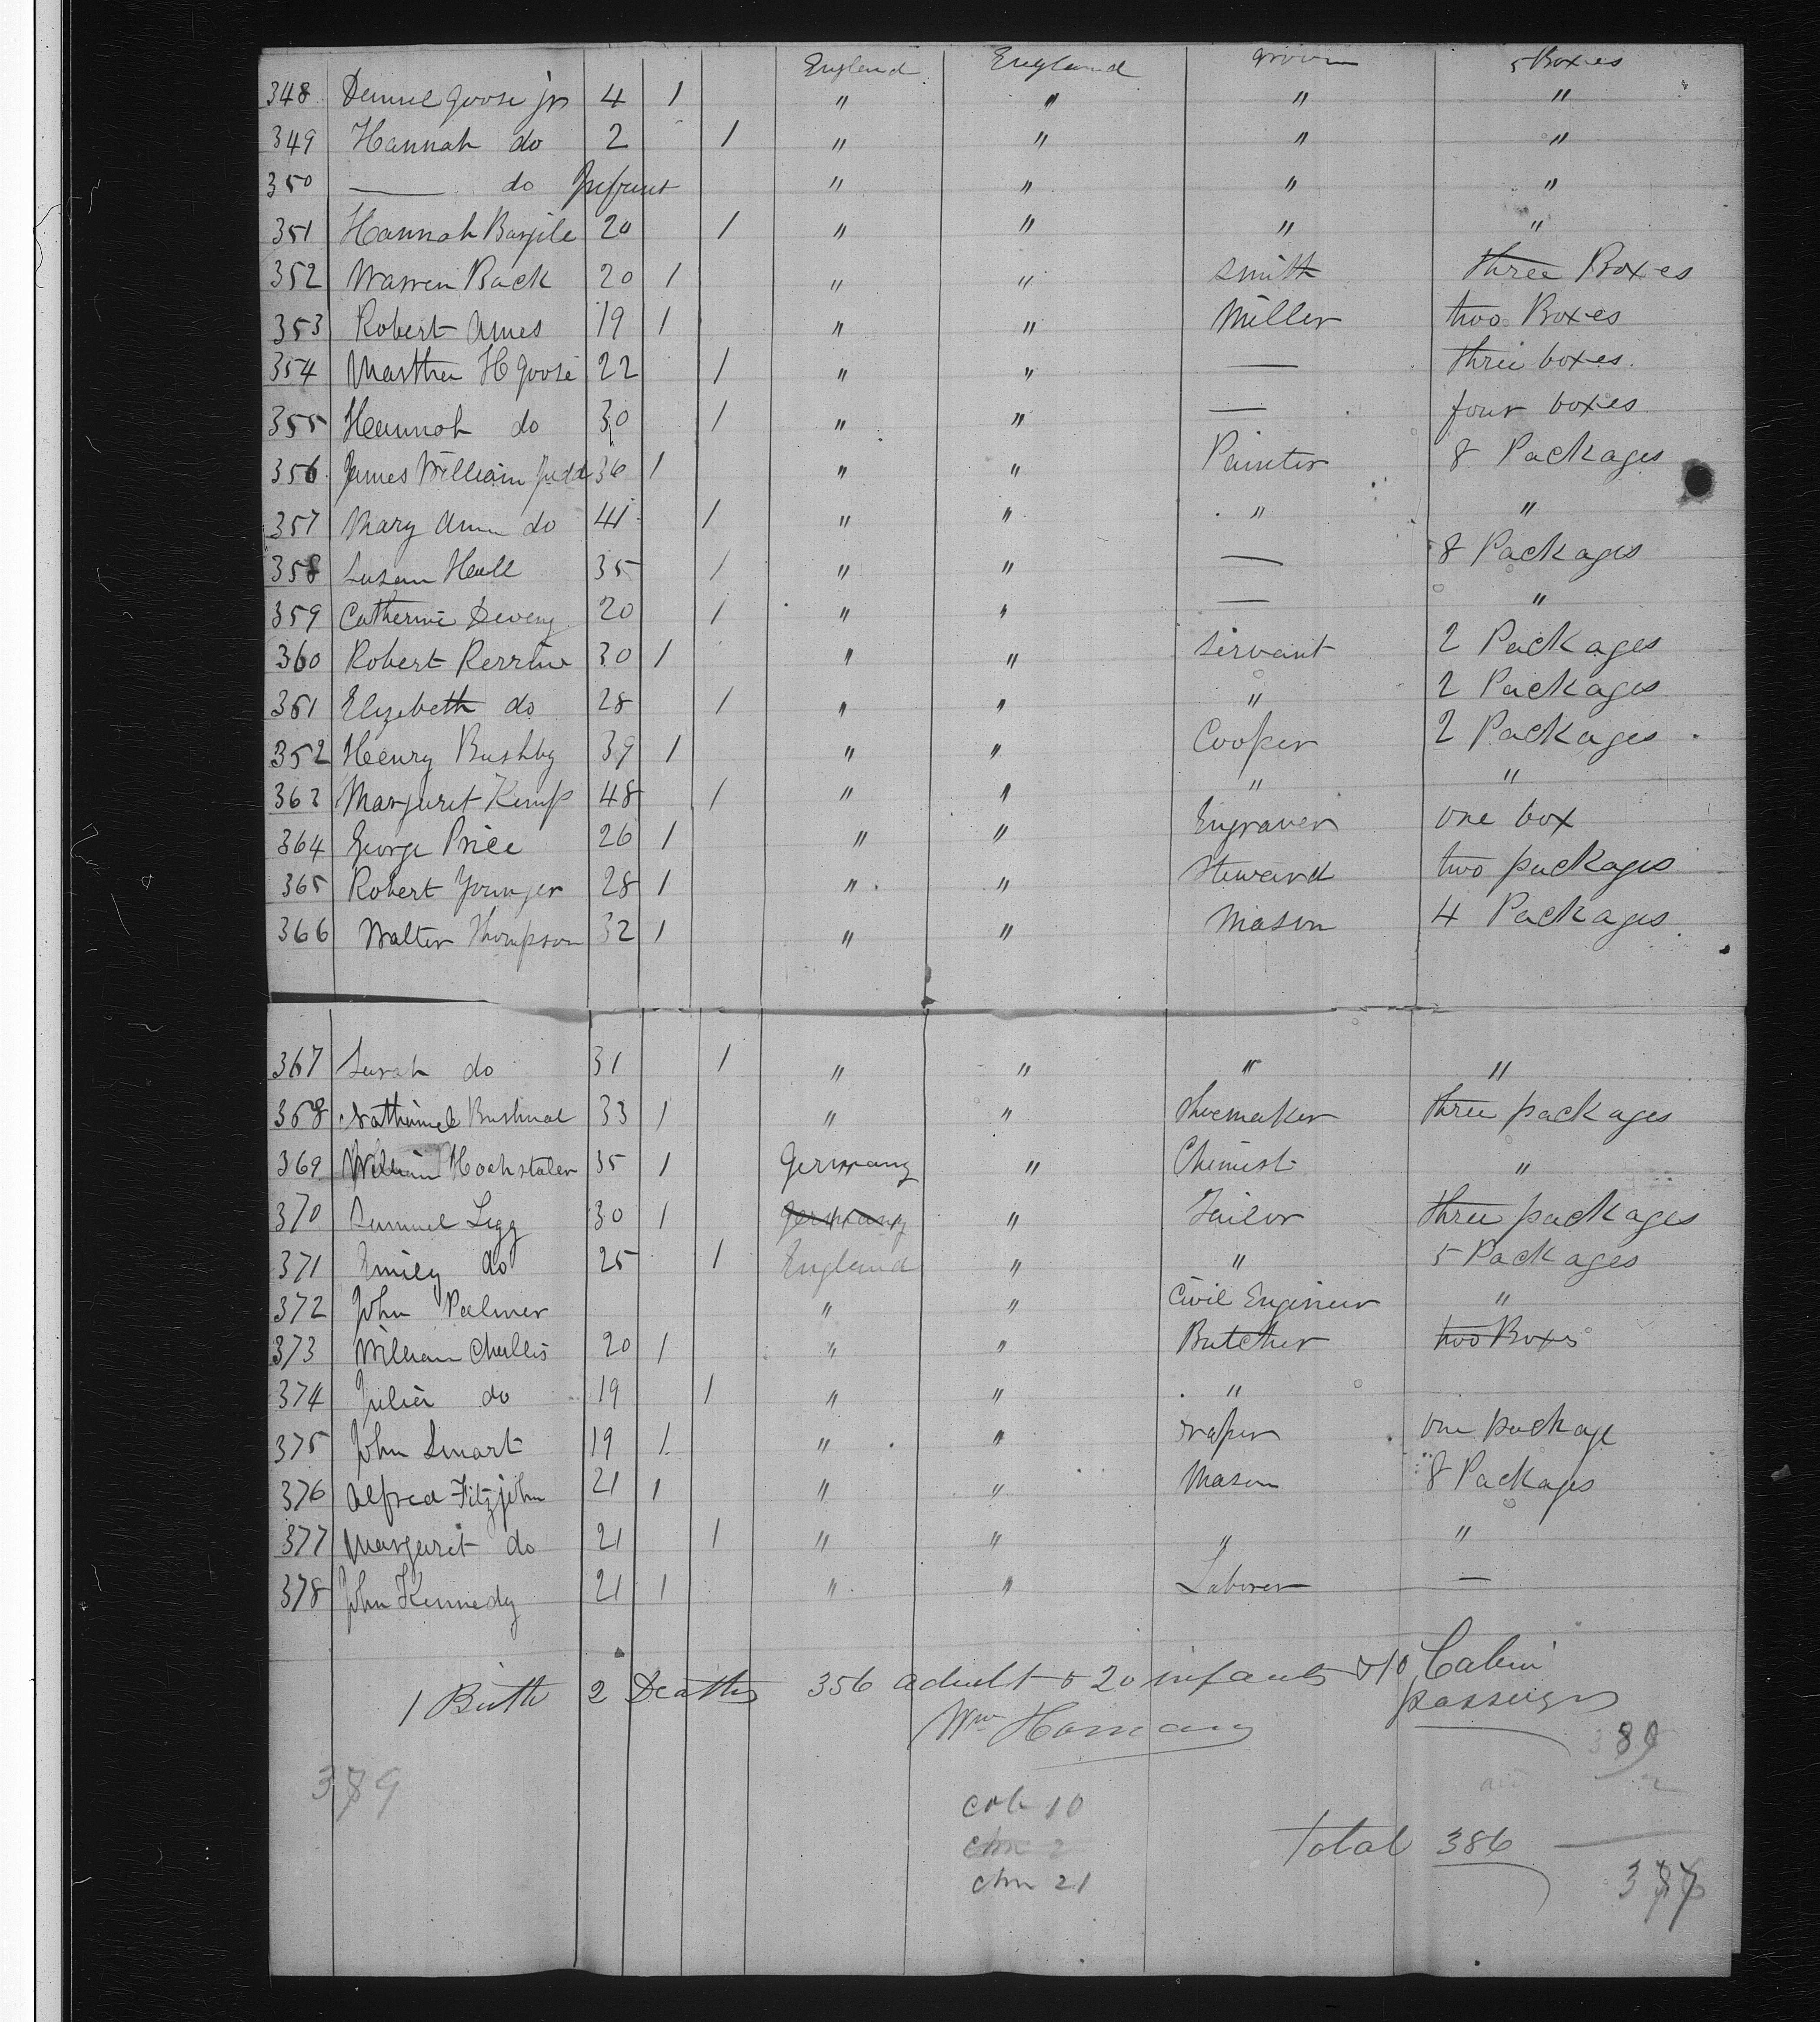 England England Groom 5 Boxes
348 Daniel Goose jr 4 1 " " " "
349 Hannah do 2 1 " " " "
350 — do Infant " " " "
351 Hannah 20 1 " " " "
352 Warren Back 20 1 " " Smith three Boxes
353 Robert Ames 19 1 " " Miller two Boxes
354 Martha H Goose 22 1 " " — three boxes.
355 Hannah do 30 1 " " — four boxes.
356 James William Judd 36 1 " " Painter 8 Packages
357 Mary Ann do 41 1 " " " "
358 Susan Hall 35 1 " " — 8 Packages
359 Catherine 20 1 " " — "
360 Robert 30 1 " " Servant 2 Packages
361 Elizebeth do 28 1 " " " 2 Packages
352 Henry Bushby 39 1 " " Cooper 2 Packages
363 Margaret Kemp 48 1 " " " "
364 George Price 26 1 " " Engraver one box
365 Robert Younger 28 1 " " Steward two packages
366 Walter Thompson 32 1 " " Mason 4 Packages.
367 Sarah do 31 1 " " " "
368 Nathaniel Bushnal 33 1 " " Shoemaker three packages
369 William Hochstaler 35 1 Germany " Chemist "
370 Samuel Legg 30 1 Germany " Tailor three packages
371 Emily do 25 1 England " " 5 Packages
372 John Palmer " " Civil Engineer "
373 William Challis 20 1 " " Butcher two Boxes
374 Julia do 19 1 " " "
375 John Smart 19 1 " " one package
376 Alfred Fitzjohn 21 1 " " Mason 8 Packages
377 Margaret do 21 1 " " " "
378 John Kennedy 21 1 " " Laborer —
1 Birth 2 Deaths 356 adult & 20 infants & 10 Cabin
passengers
Wm
389
379
cab 10
chn 2
Total 386
chn 21